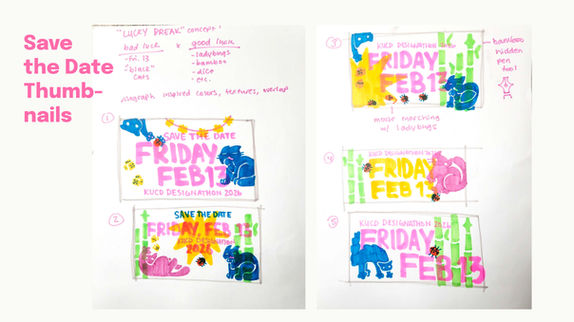 Save
the Date
Thumb-
nails
"LUCKY BREAK" concept:
bad luck & good luck
- Fri. 13
- "black"
cats
- ladybugs
- bamboo
- dice
- etc.
risograph inspired colors, textures, overlap
1
SAVE THE DATE
FRIDAY
FEB 13
KUCD DESIGNATHON 2026
2
SAVE THE DATE
FRIDAY, FEB 13
KUCD DESIGNATHON
2026
3
KUCD DESIGNATHON 2026
FRIDAY
FEB 13
bamboo
hidden
pen
tool
mouse marching
w/ ladybugs
4
KUCD DESIGNATHON 2026
FRIDAY
FEB 13
5
KUCD DESIGNATHON 2026
FRIDAY
FEB 13